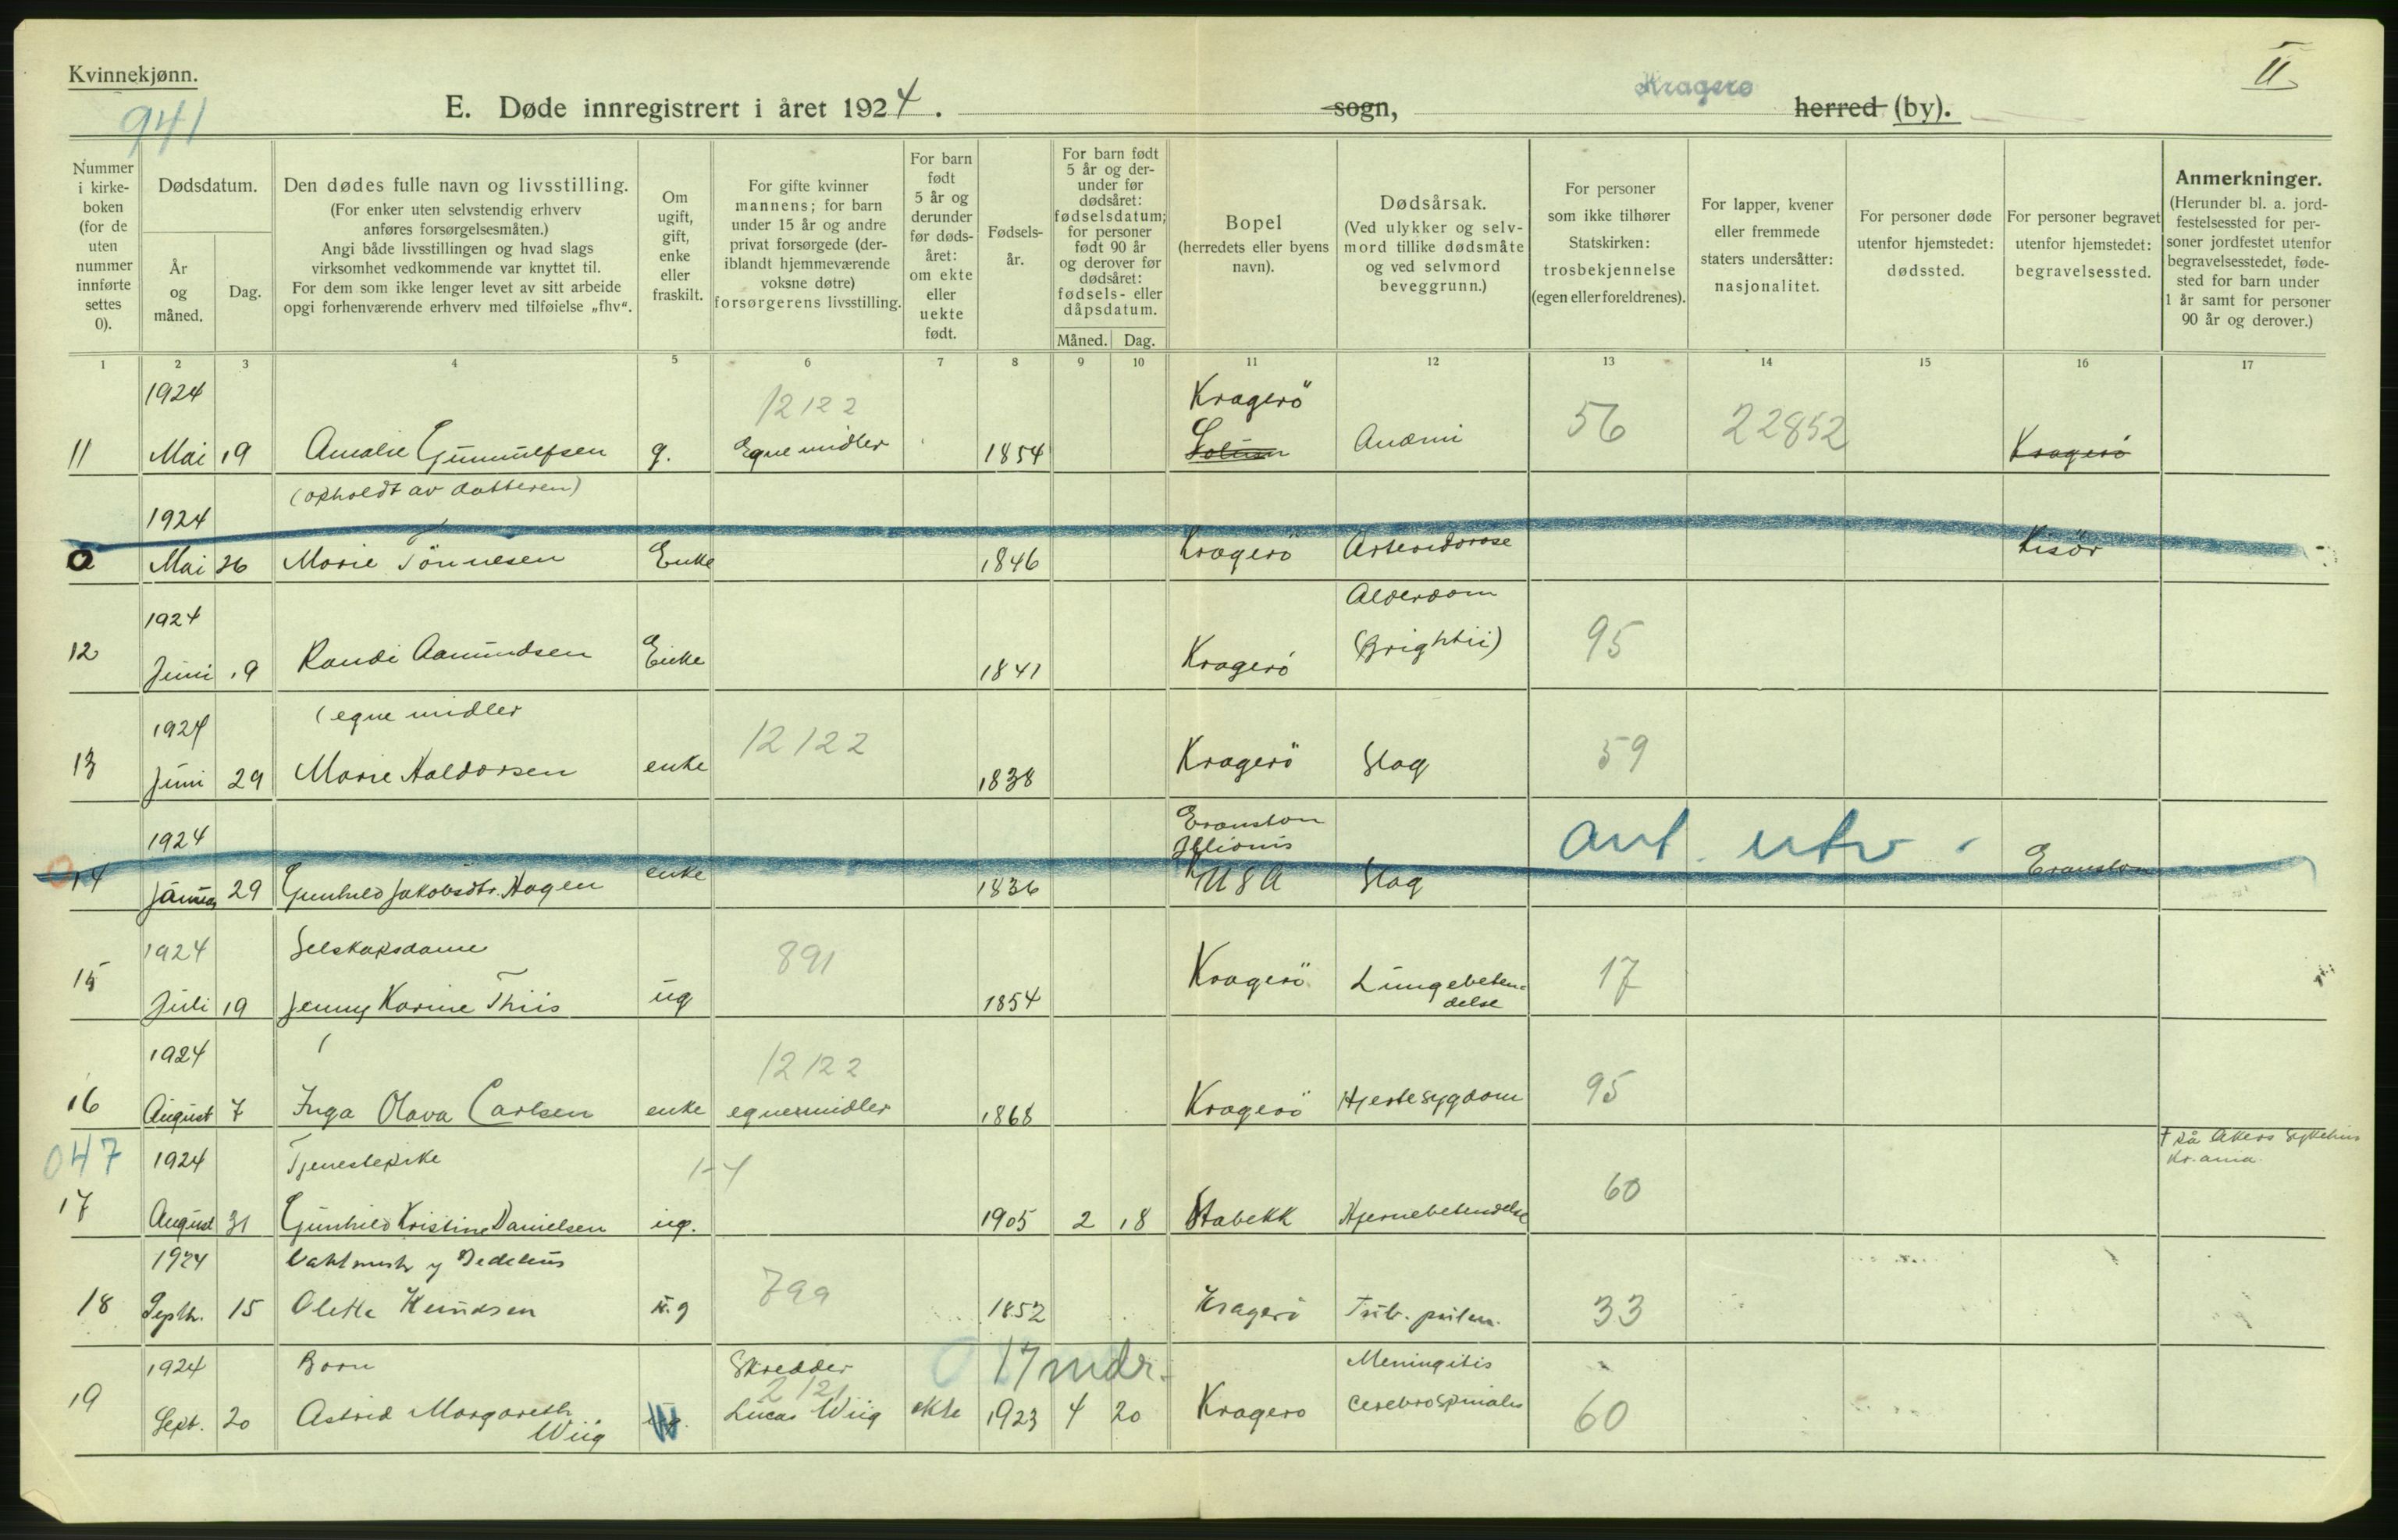 Kvinnekjønn.
941
E. Døde innregistrert i året 1924. sogn, Kragerø herred (by).
II
Nummer i kirke-boken (for de uten nummer innførte settes 0).
Dødsdatum.
År og måned.
Dag.
Den dødes fulle navn og livsstilling.
(For enker uten selvstendig erhverv anføres forsørgelsesmåten.)
Angi både livsstillingen og hvad slags virksomhet vedkommende var knyttet til.
For dem som ikke lenger levet av sitt arbeide opgi forhenværende erhverv med tilføielse „fhv“.
Om ugift, gift, enke eller fraskilt.
For gifte kvinner mannens; for barn under 15 år og andre privat forsørgede (der-iblandt hjemmeværende voksne døtre) forsørgerens livsstilling.
For barn født 5 år og derunder før døds-året: om ekte eller uekte født.
Fødsels-år.
For barn født 5 år og der-under før dødsåret: fødselsdatum; for personer født 90 år og derover før dødsåret: fødsels- eller dåpsdatum.
Måned. Dag.
Bopel (herredets eller byens navn).
Dødsårsak. (Ved ulykker og selv-mord tillike dødsmåte og ved selvmord beveggrunn.)
For personer som ikke tilhører Statskirken: trosbekjennelse (egen eller foreldrenes).
For lapper, kvener eller fremmede staters undersåtter: nasjonalitet.
For personer døde utenfor hjemstedet: dødssted.
For personer begravet utenfor hjemstedet: begravelsessted.
Anmerkninger. (Herunder bl. a. jord-festelsessted for per-soner jordfestet utenfor begravelsesstedet, føde-sted for barn under 1 år samt for personer 90 år og derover.)
1 2 3 4 5 6 7 8 9 10 11 12 13 14 15 16 17
1924 12122 Kragerö
11 Mai 19 Amalie Gunnulfsen g. Egne midler 1854 Solum Anæmi 56 22852 Kragerö
(opholdt av datteren)
1924
0 Mai 26 Marie Tönnesen Enke 1846 Kragerö Risör
1924 Alderdom
12 Juni 19 Randi Aamundsen Enke 1841 Kragerö (Brightii) 95
1924 (egne midler 12122
13 Juni 29 Marie Haldorsen enke 1838 Kragerö Slag 59
1924 Evanston Illionis ant. utv.
14 Januar 29 Gunhild Jakobsdtr. Hagen enke 1836 USA Slag Evanston
1924 Selskapsdame 891
15 Juli 19 Jenny Karine Thiis ug 1854 Kragerö Lungebeten=delse 17
1924 12122
16 August 7 Inga Olava Carlsen enke egnemidler 1868 Kragerö Hjertesygdom 95
047 1924 Tjenestepike 1-4 † på Akers sykehus Kr.ania.
17 August 31 Gunhild Kristine Danielsen ug. 1905 2 18 Stabekk Hjernebetendelse 60
1924 799
18 Septbr. 15 Olette Knudsen u.g 1852 Kragerö Tub. pulm. 33
1924 Barn Skredder 0 17 mdr. Meningitis
2121
19 Sept. 20 Astrid Margareth Wiig ug. Lucas Wiig ekte 1923 4 20 Kragerø Cerebrospinalis 60